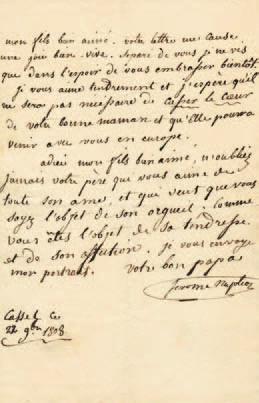 mon fils bien aimé. votre lettre me cause
une joie bien vive. séparé de vous je ne vis
que dans l'espoir de vous embrasser bientôt.
je vous aime tendrement et j'espère qu'il
ne sera pas nécessaire de casser le cœur
de votre bonne maman et qu'Elle pourra
venir avec vous en europe.
adieu mon fils bien aimé, n'oubliez
jamais votre père que vous aime de
toute son ame, et qui veut que vous
soyez l'objet de son orgueil, comme
vous êtes l'objet de sa tendresse
et de son affection. je vous envoye
mon portrait. votre bon papa
Jerome Napoleon
Cassel ce
22 9bre 1808